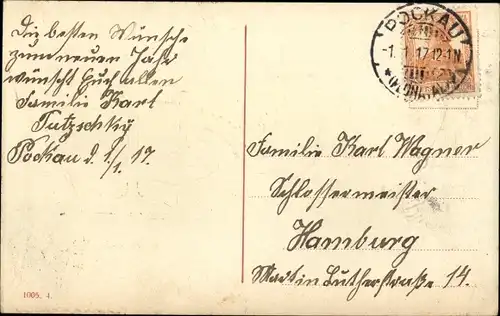 Die besten Wünsche
zum neuen Jahr
wünscht Euch allen
Familie Karl
Tutzschky
Pockau d. 1/1. 17.
POCKAU
-1. 1. 17. 12-1N
Familie Karl Wagner
Schlossermeister
Hamburg
Martin Lutherstraße 14.
1005. 4.